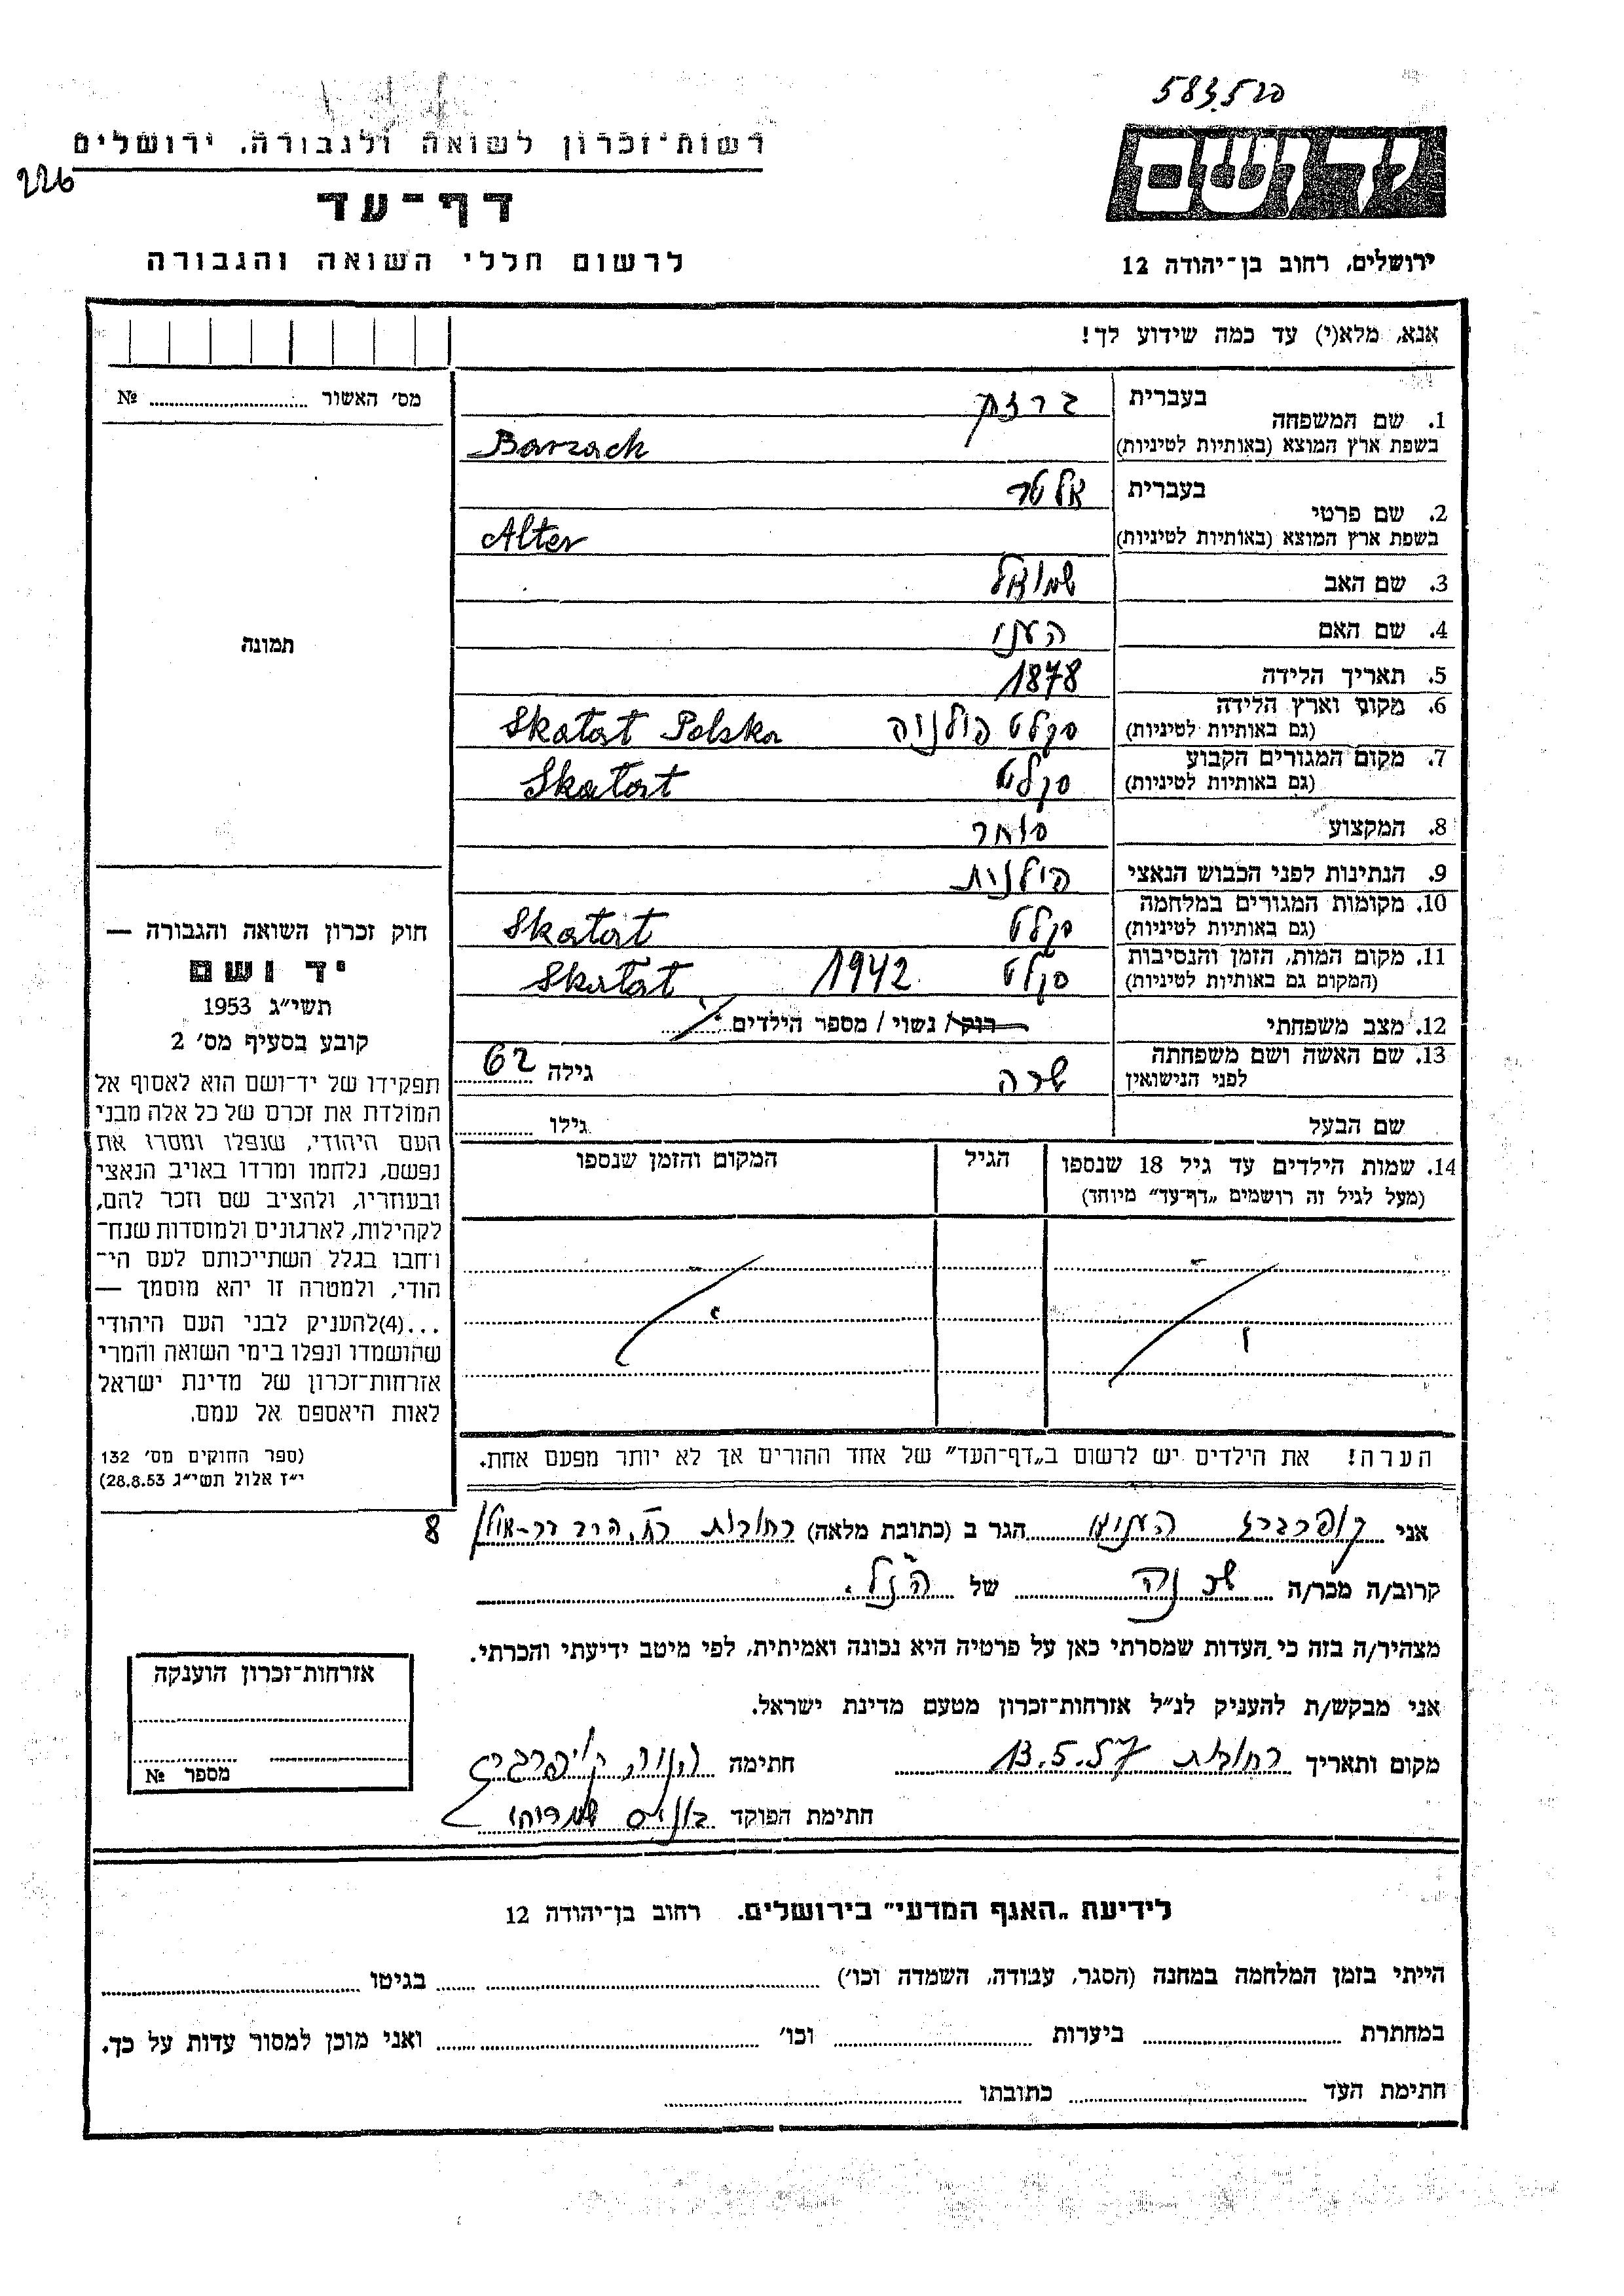 583520
226
רשות־זכרון לשואה ולגבורה, ירושלים
דף־עד
לרשום חללי השואה והגבורה
ידושם
ירושלים, רחוב בן־יהודה 12
אנא, מלא(י) עד כמה שידוע לך!
מס׳ האשור № 
תמונה
1. שם המשפחה בעברית ברזק
בשפת ארץ המוצא (באותיות לטיניות) Barzach
2. שם פרטי בעברית אלטר
בשפת ארץ המוצא (באותיות לטיניות) Alter
3. שם האב שמואל
4. שם האם העני
5. תאריך הלידה 1878
6. מקום וארץ הלידה (גם באותיות לטיניות) סקלט פולניה Skatat Polska
7. מקום המגורים הקבוע (גם באותיות לטיניות) סקלט Skatat
8. המקצוע סוחר
9. הנתינות לפני הכבוש הנאצי פולנית
10. מקומות המגורים במלחמה (גם באותיות לטיניות) סקלט Skatat
11. מקום המות, הזמן והנסיבות (המקום גם באותיות לטיניות) סקלט 1942 Skatat
12. מצב משפחתי רוק/ נשוי / מספר הילדים
13. שם האשה ושם משפחתה לפני הנישואין שרה גילה 62
שם הבעל גילו
14. שמות הילדים עד גיל 18 שנספו (מעל לגיל זה רושמים „דף־עד״ מיוחד) הגיל המקום והזמן שנספו
הערה! את הילדים יש לרשום ב„דף־העד״ של אחד ההורים אך לא יותר מפעם אחת.
חוק זכרון השואה והגבורה —
יד ושם
תשי״ג 1953
קובע בסעיף מס׳ 2
תפקידו של יד־ושם הוא לאסוף אל
המולדת את זכרם של כל אלה מבני
העם היהודי, שנפלו ומסרו את
נפשם, נלחמו ומרדו באויב הנאצי
ובעוזריו, ולהציב שם וזכר להם,
לקהילות, לארגונים ולמוסדות שנח־
רבו בגלל השתייכותם לעם הי־
הודי, ולמטרה זו יהא מוסמך —
...(4)להעניק לבני העם היהודי
שהושמדו ונפלו בימי השואה והמרי
אזרחות־זכרון של מדינת ישראל
לאות היאספם אל עמם.
(ספר החוקים מס׳ 132
י״ז אלול תשי״ג 28.8.53)
אני קופרברג העניא הגר ב (כתובת מלאה) רחובות רח׳ הרב בר-אילן 8
קרוב/ה מכר/ה שכנה של הנ״ל.
מצהיר/ה בזה כי העדות שמסרתי כאן על פרטיה היא נכונה ואמיתית, לפי מיטב ידיעתי והכרתי.
אני מבקש/ת להעניק לנ״ל אזרחות־זכרון מטעם מדינת ישראל.
מקום ותאריך רחובות 13.5.57 חתימה קופרברג
חתימת הפוקד
אזרחות־זכרון הוענקה
מספר №
לידיעת „האגף המדעי״ בירושלים. רחוב בן־יהודה 12
הייתי בזמן המלחמה במחנה (הסגר, עבודה, השמדה וכו׳) בגיטו
במחתרת ביערות וכו׳ ואני מוכן למסור עדות על כך.
חתימת העד כתובתו